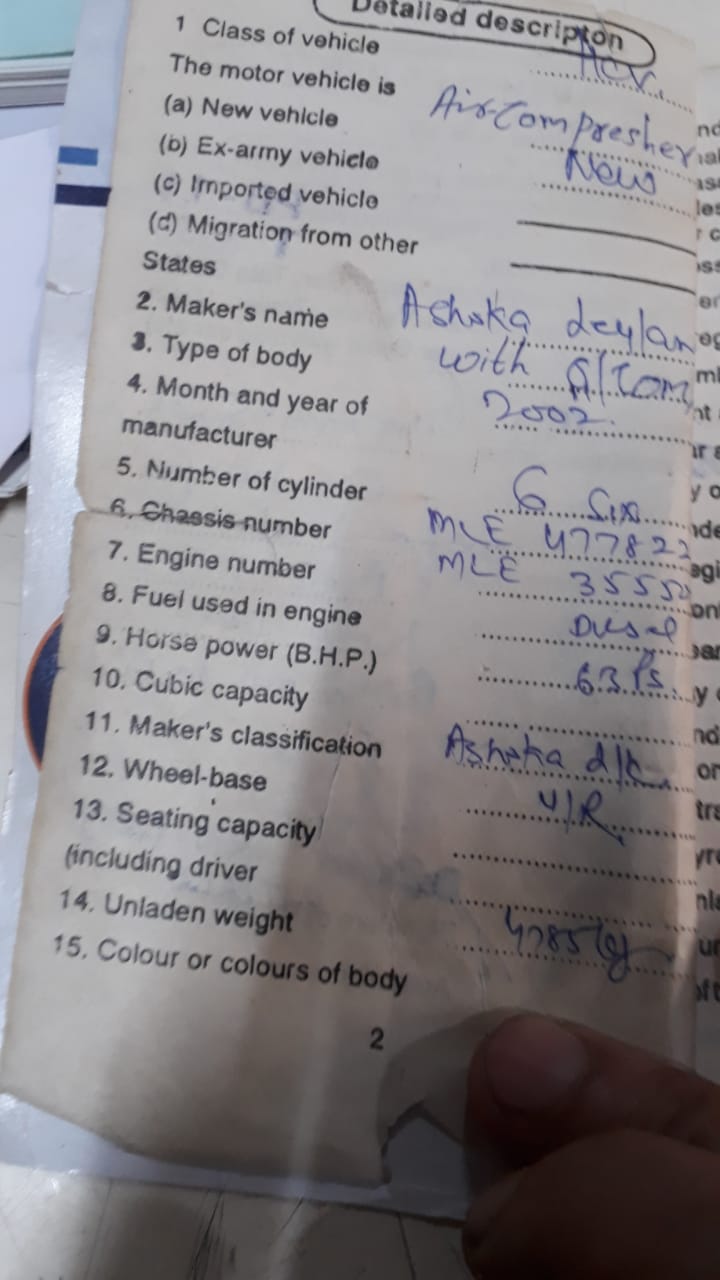 Detailed descripton
1 Class of vehicle HCV.
The motor vehicle is Aircompresher
(a) New vehicle New
(b) Ex-army vehicle
(c) Imported vehicle
(d) Migration from other
States
2. Maker's name Ashoka Leylan
3. Type of body with
4. Month and year of 2002.
manufacturer
5. Number of cylinder 6 Six
6. Chassis number MLE 477822
7. Engine number MLE 35550
8. Fuel used in engine
9. Horse power (B.H.P.) 63 Ps.
10. Cubic capacity
11. Maker's classification Ashoka
12. Wheel-base
13. Seating capacity
(including driver
14. Unladen weight 4785
15. Colour or colours of body
2